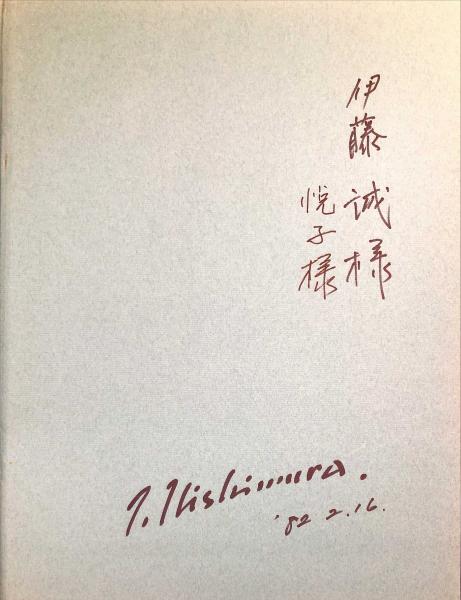 伊藤 誠様
悦子様
J. Nishimura.
'82 2.16.